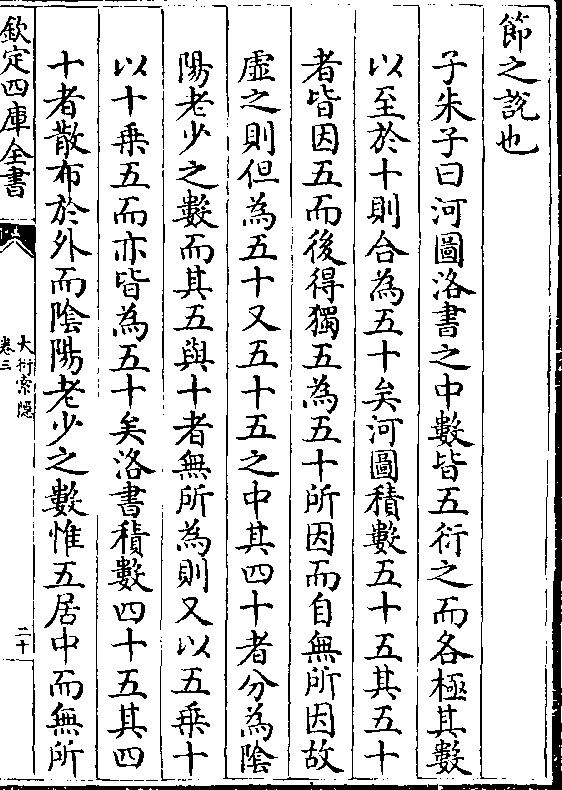 節之說也
子朱子曰河圖洛書之中數皆五衍之而各極其數
以至於十則合為五十矣河圖積數五十五其五十
者皆因五而後得獨五為五十所因而自無所因故
虛之則但為五十又五十五之中其四十者分為陰
陽老少之數而其五與十者無所為則又以五乘十
以十乘五而亦皆為五十矣洛書積數四十五其四
十者散布於外而陰陽老少之數惟五居中而無所
欽定四庫全書
大衍索隱
卷三
二十